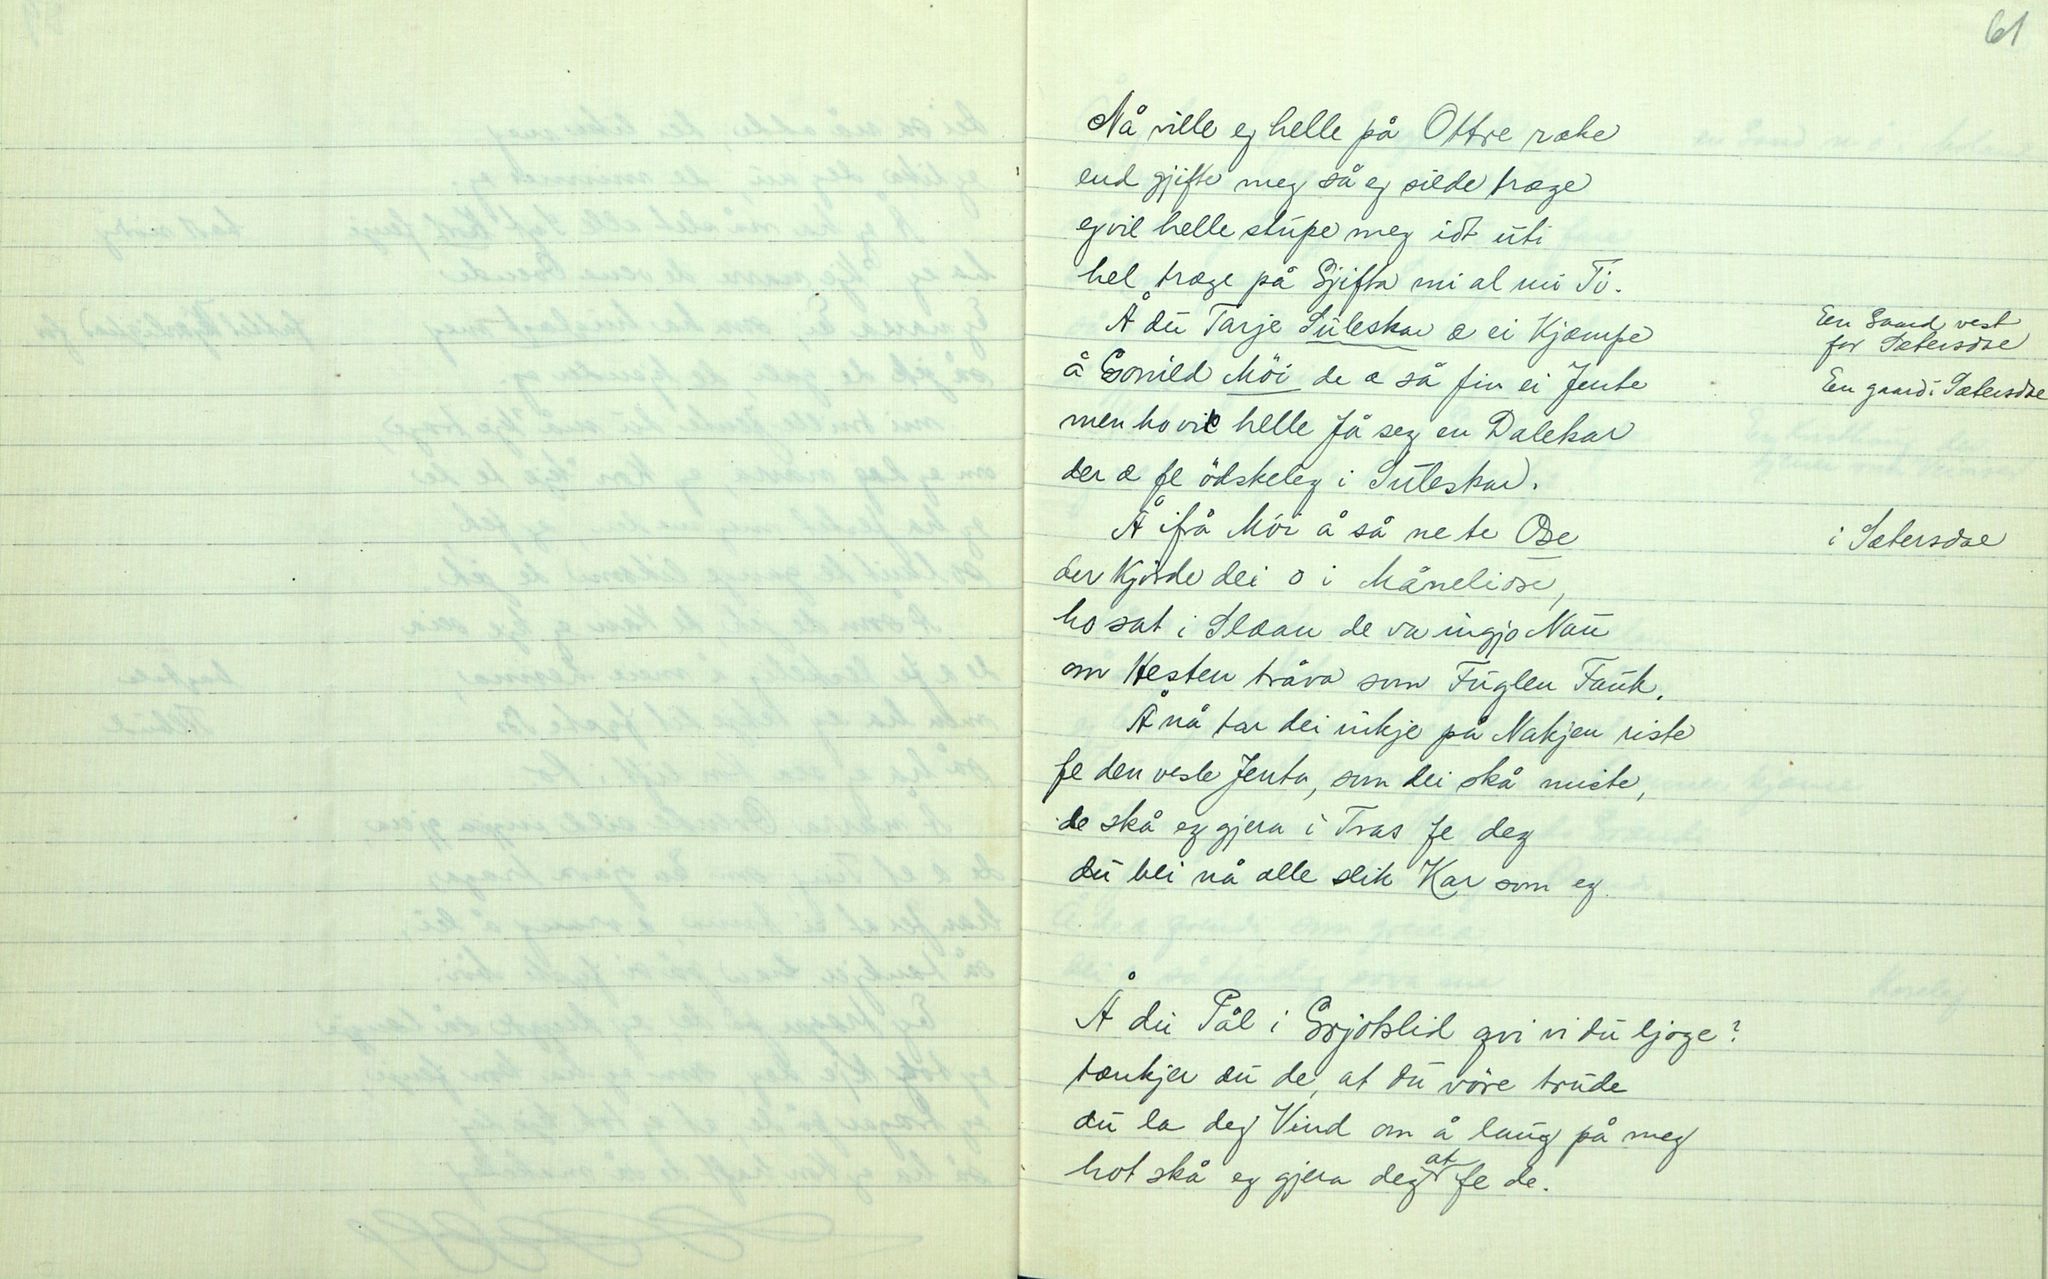 61
Nå ville eg helle på Ottre rake
end gjifte meg så eg silde træge
eg vil helle stupe meg idt uti
hel træge på Gjifta mi al mi Ti.
Å du Tarje Suleskar æ ei Kjæmpe
En Gaard vest
for Sætersdæ
å Gonild Möi de æ så fin ei Jente
En gaard i Sætersdæ
men ho vil helle få seg en Dalekar
der æ fe ödskeleg i Suleskar.
Å ifrå Möi å så ne te Ose
i Sætersdæ
der Kjörde dei o i Måneliose,
ho sat i Slæan de va ingjo Nau
om Hesten tråva som Fuglen Fauk.
Å nå tar dei inkje på Nakjen riste
fe den vesle Jenta, som dei skå miste,
de skå eg gjera i Tras fe deg
du blei nå alle slik Kar som eg
Å du Pål i Grjotlid qvi vi du ljoge?
tænkjer du de, at du vöre trude
du la deg Vind om å laug på meg
hot skå eg gjera deg at fe de.